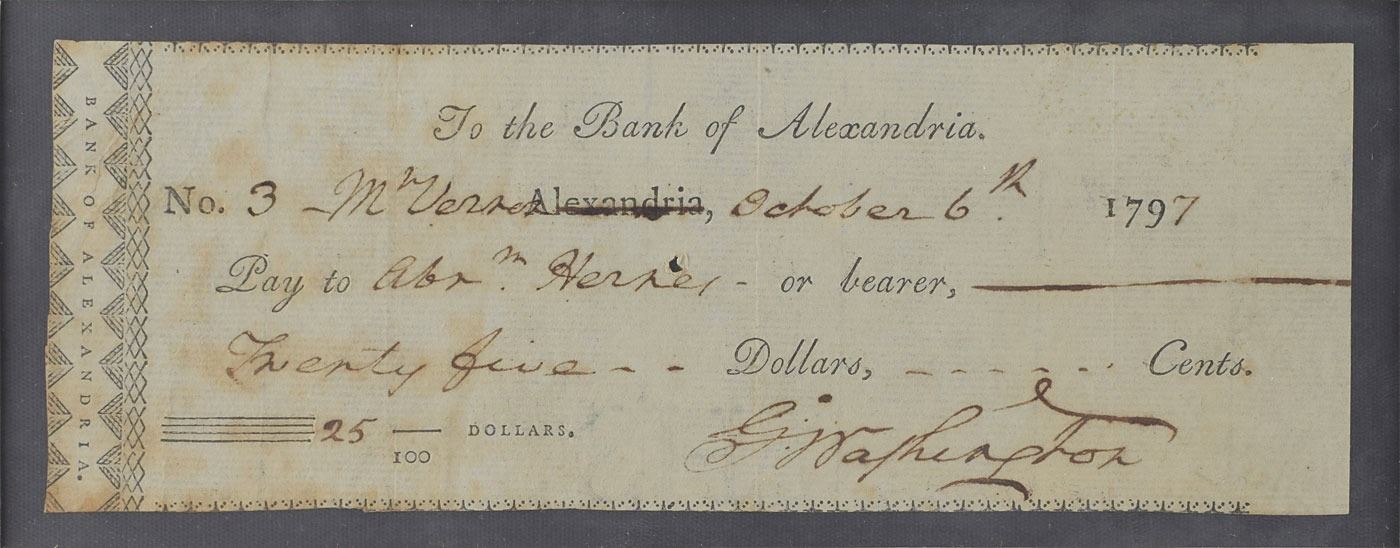 BANK OF ALEXANDRIA.
To the Bank of Alexandria.
No. 3 Mt Vernon Alexandria, October 6th. 1797
Pay to Abrm. - or bearer,
Twenty five - - Dollars, - - - - - - Cents.
25 — DOLLARS.
100
G:Washington